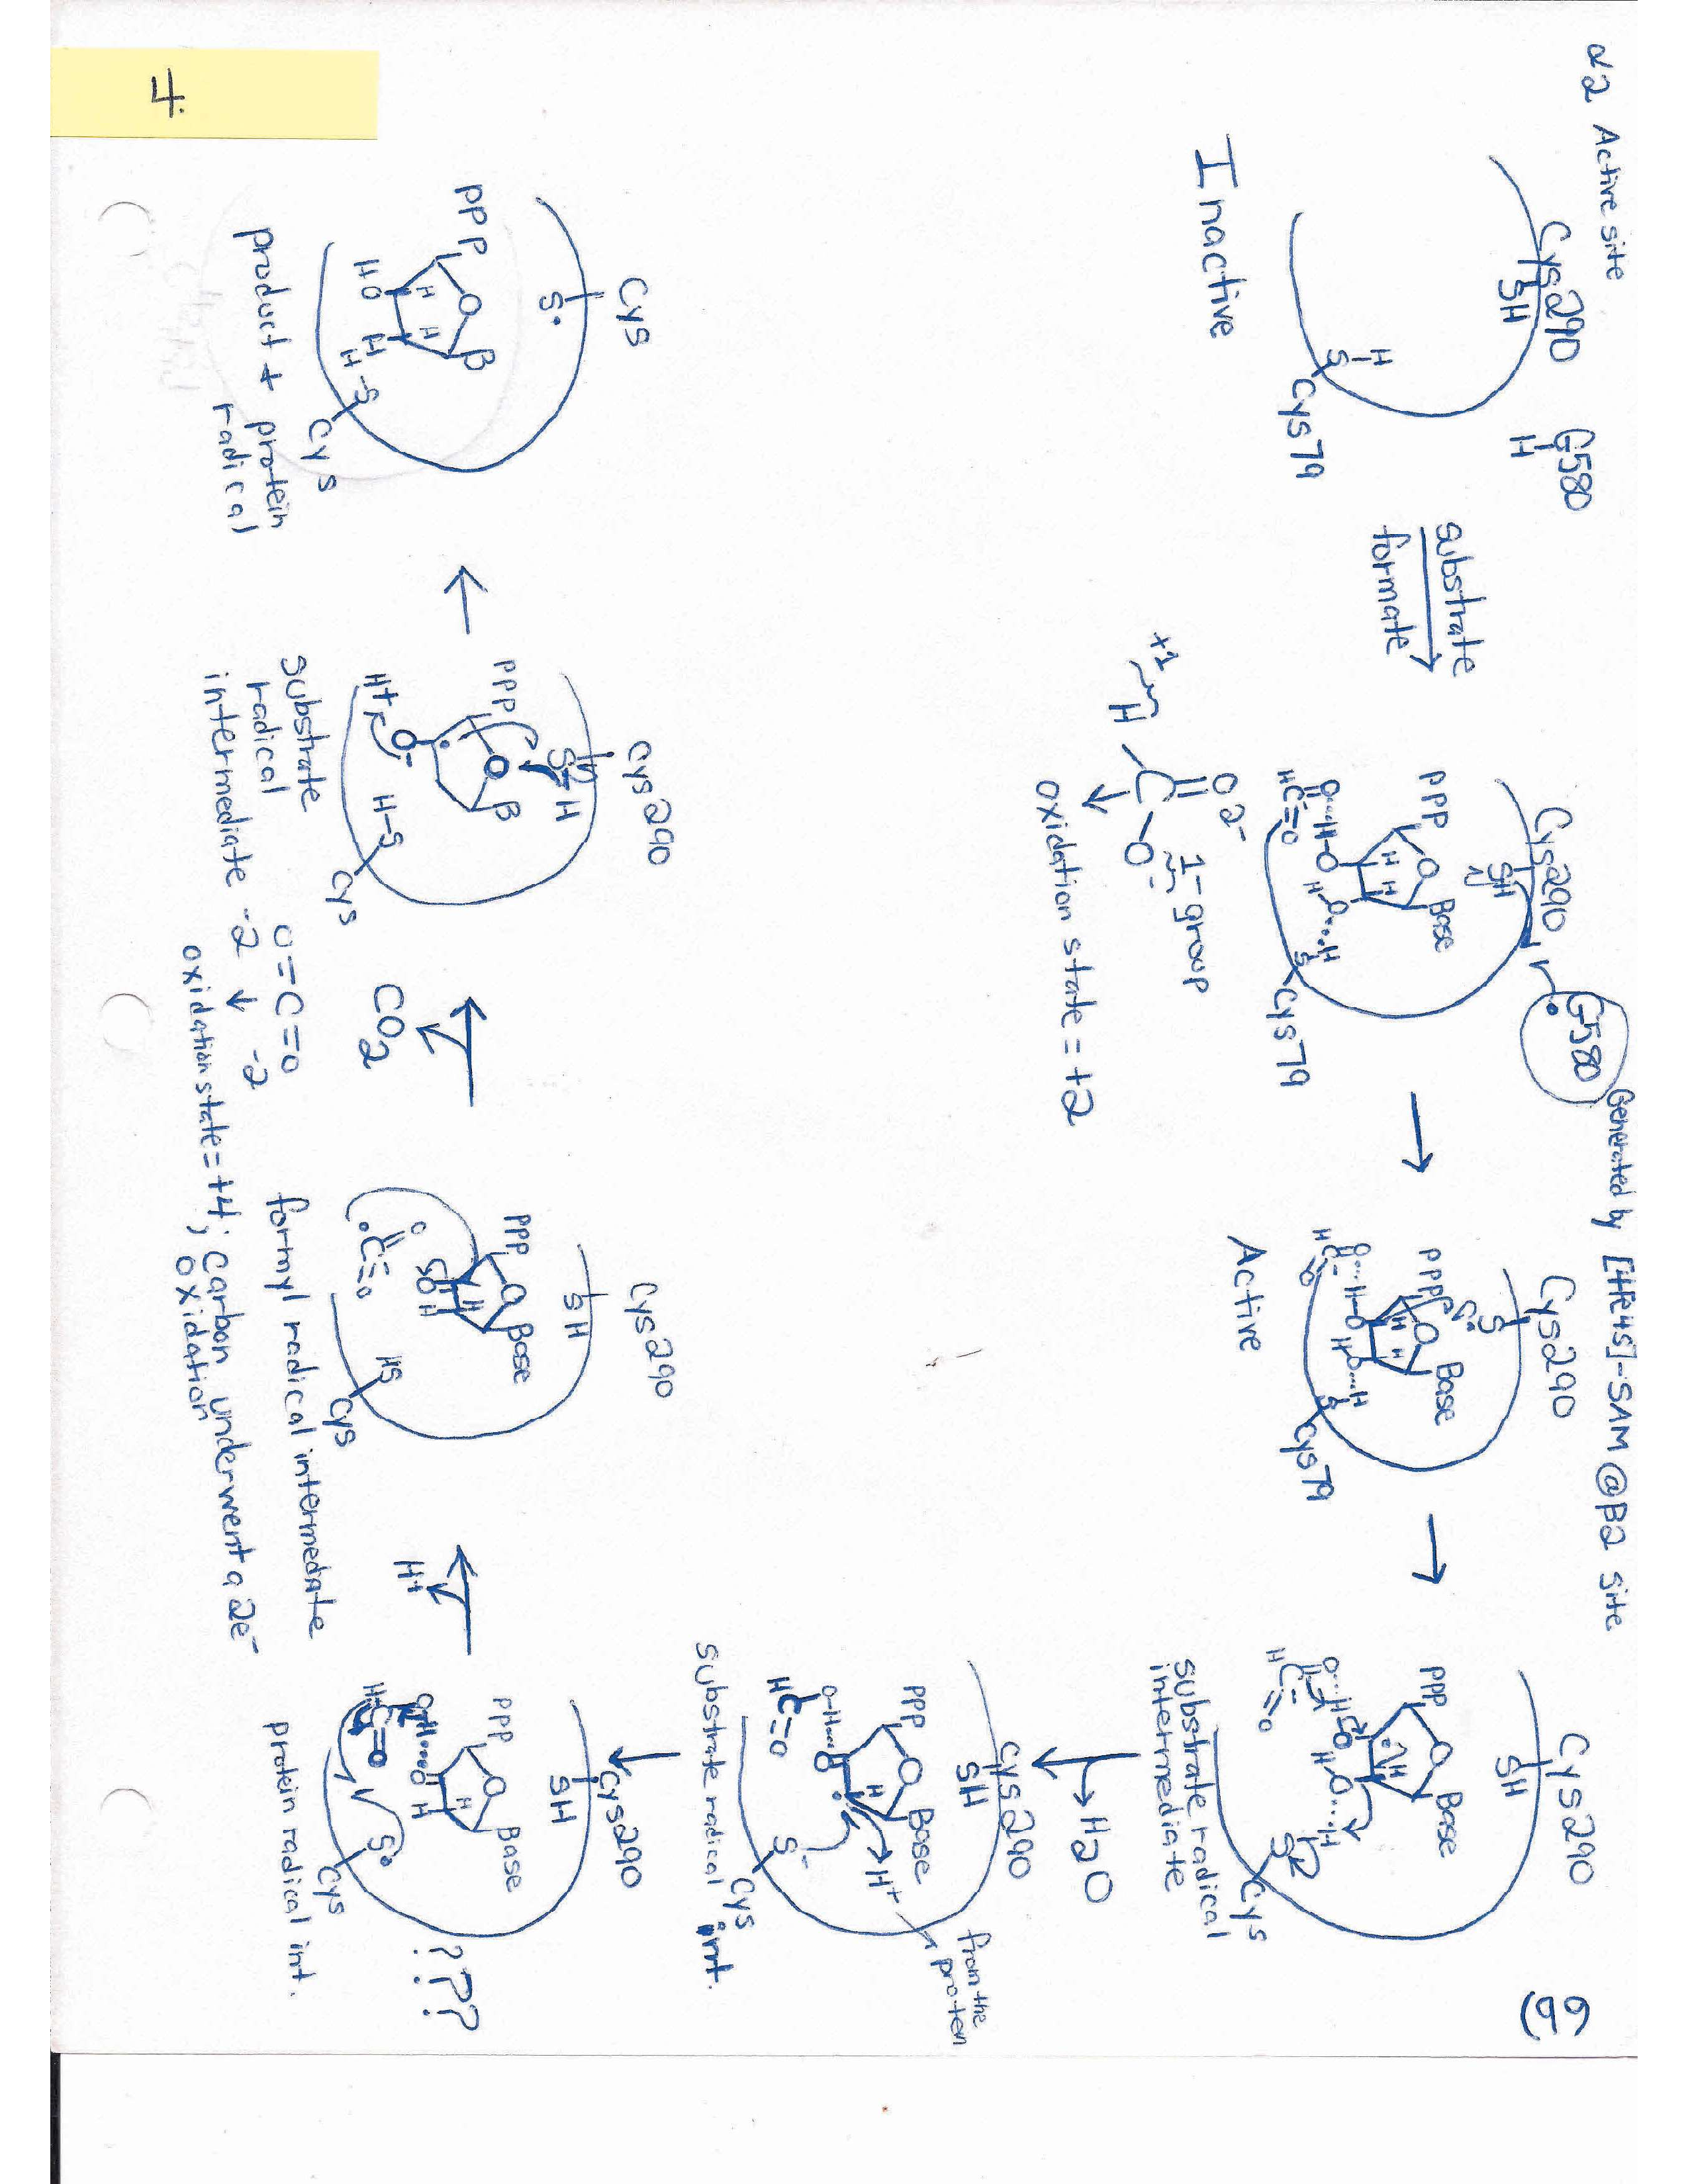 α2 Active site
Generated by [4Fe4S]-SAM @ β2 site
6)
Cys290
SH
G580
H
H
S
Cys79
Inactive
substrate
formate
Cys290
SH
G580
PPP
O
Base
H H
O...H-O
H O...H
HC=O
S
Cys79
O 2-
1- group
+1
H
C
O-
oxidation state = +2
Cys290
S
PPP
O
Base
H H
O...H-O
H O...H
HC=O
S
Cys79
Active
Cys290
SH
PPP
O
Base
H
O...H
O
H O...H
HC=O
S
Cys
substrate radical
intermediate
H2O
Cys290
SH
PPP
O
Base
H
H+
from the
protein
O-H...O
HC=O
S-
Cys
substrate radical int.
Cys290
SH
PPP
O
Base
H
O-H...O H
HC=O
S
Cys
???
protein radical int.
H+
Cys290
SH
PPP
O
Base
H
OH
O
C=O
HS
Cys
formyl radical intermediate
CO2
O=C=O
-2 -2
oxidation state = +4; carbon underwent a 2e-
oxidation
Cys290
S-H
PPP
O
B
H+
O-
H-S
Cys
substrate
radical
intermediate
Cys
S
PPP
O
B
H H
HO H
H-S
Cys
product + protein
radical
4.